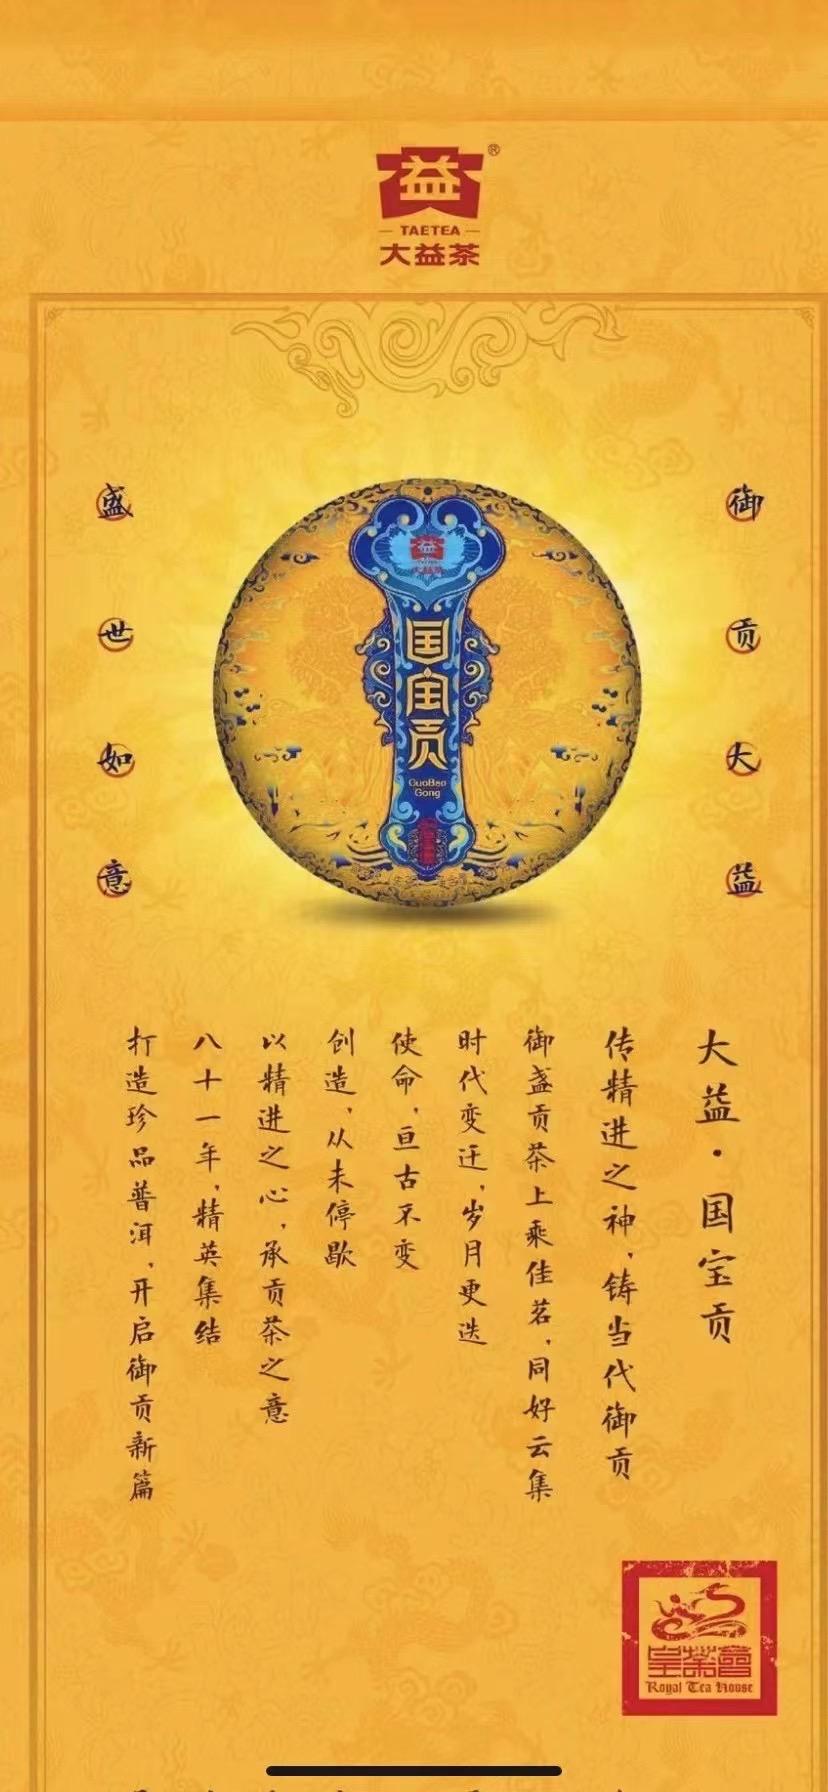 益®
TAETEA
大益茶
御贡大益
盛世如意
益
国宝贡
GuoBao
Gong
大益·国宝贡
传精进之神，铸当代御贡
御盏贡茶上乘佳茗，同好云集
时代变迁，岁月更迭
使命，亘古不变
创造，从未停歇
以精进之心，承贡茶之意
八十一年，精英集结
打造珍品普洱，开启御贡新篇
皇茶會
Royal Tea House